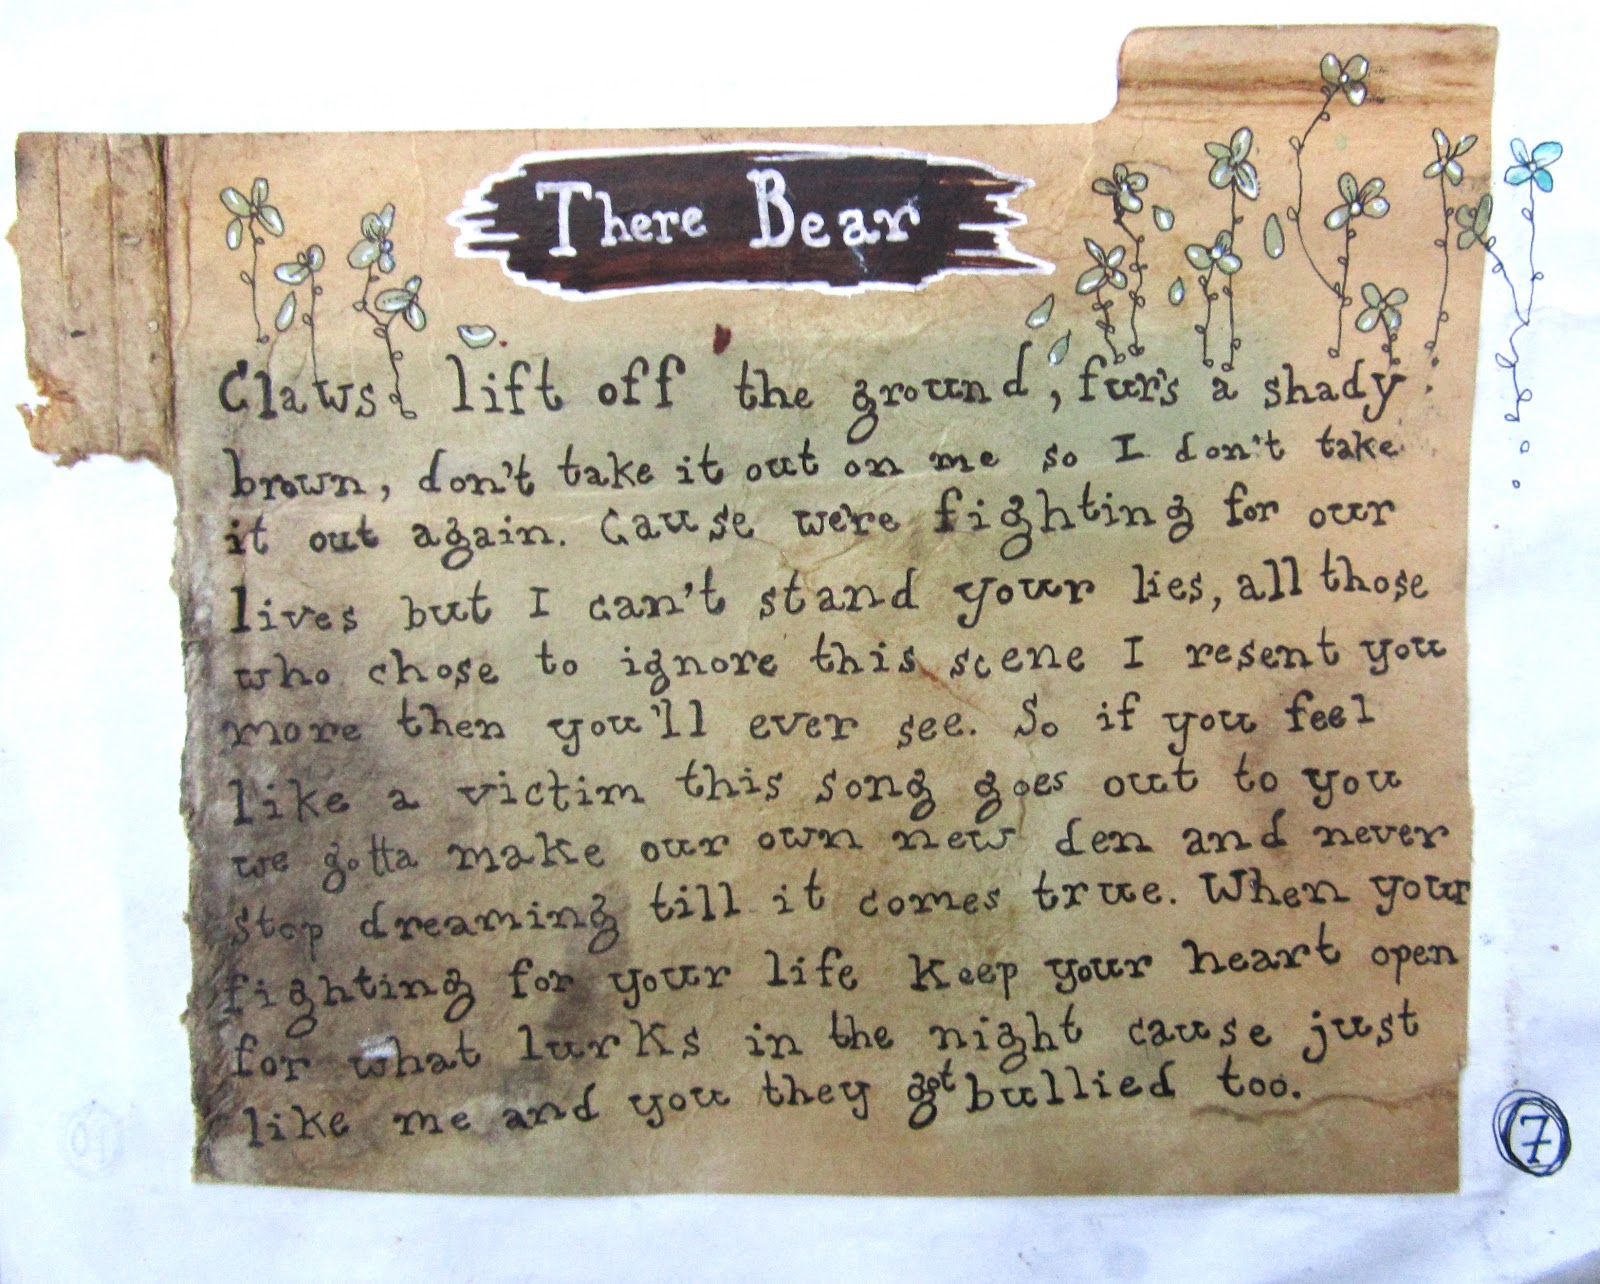 There Bear
Claws lift off the ground, fur's a shady
brown, don't take it out on me so I don't take
it out again. Cause we're fighting for our
lives but I can't stand your lies, all those
who chose to ignore this scene I resent you
more then you'll ever see. So if you feel
like a victim this song goes out to you
we gotta make our own new den and never
stop dreaming till it comes true. When your
fighting for your life keep your heart open
for what lurks in the night cause just
like me and you they got bullied too.
7